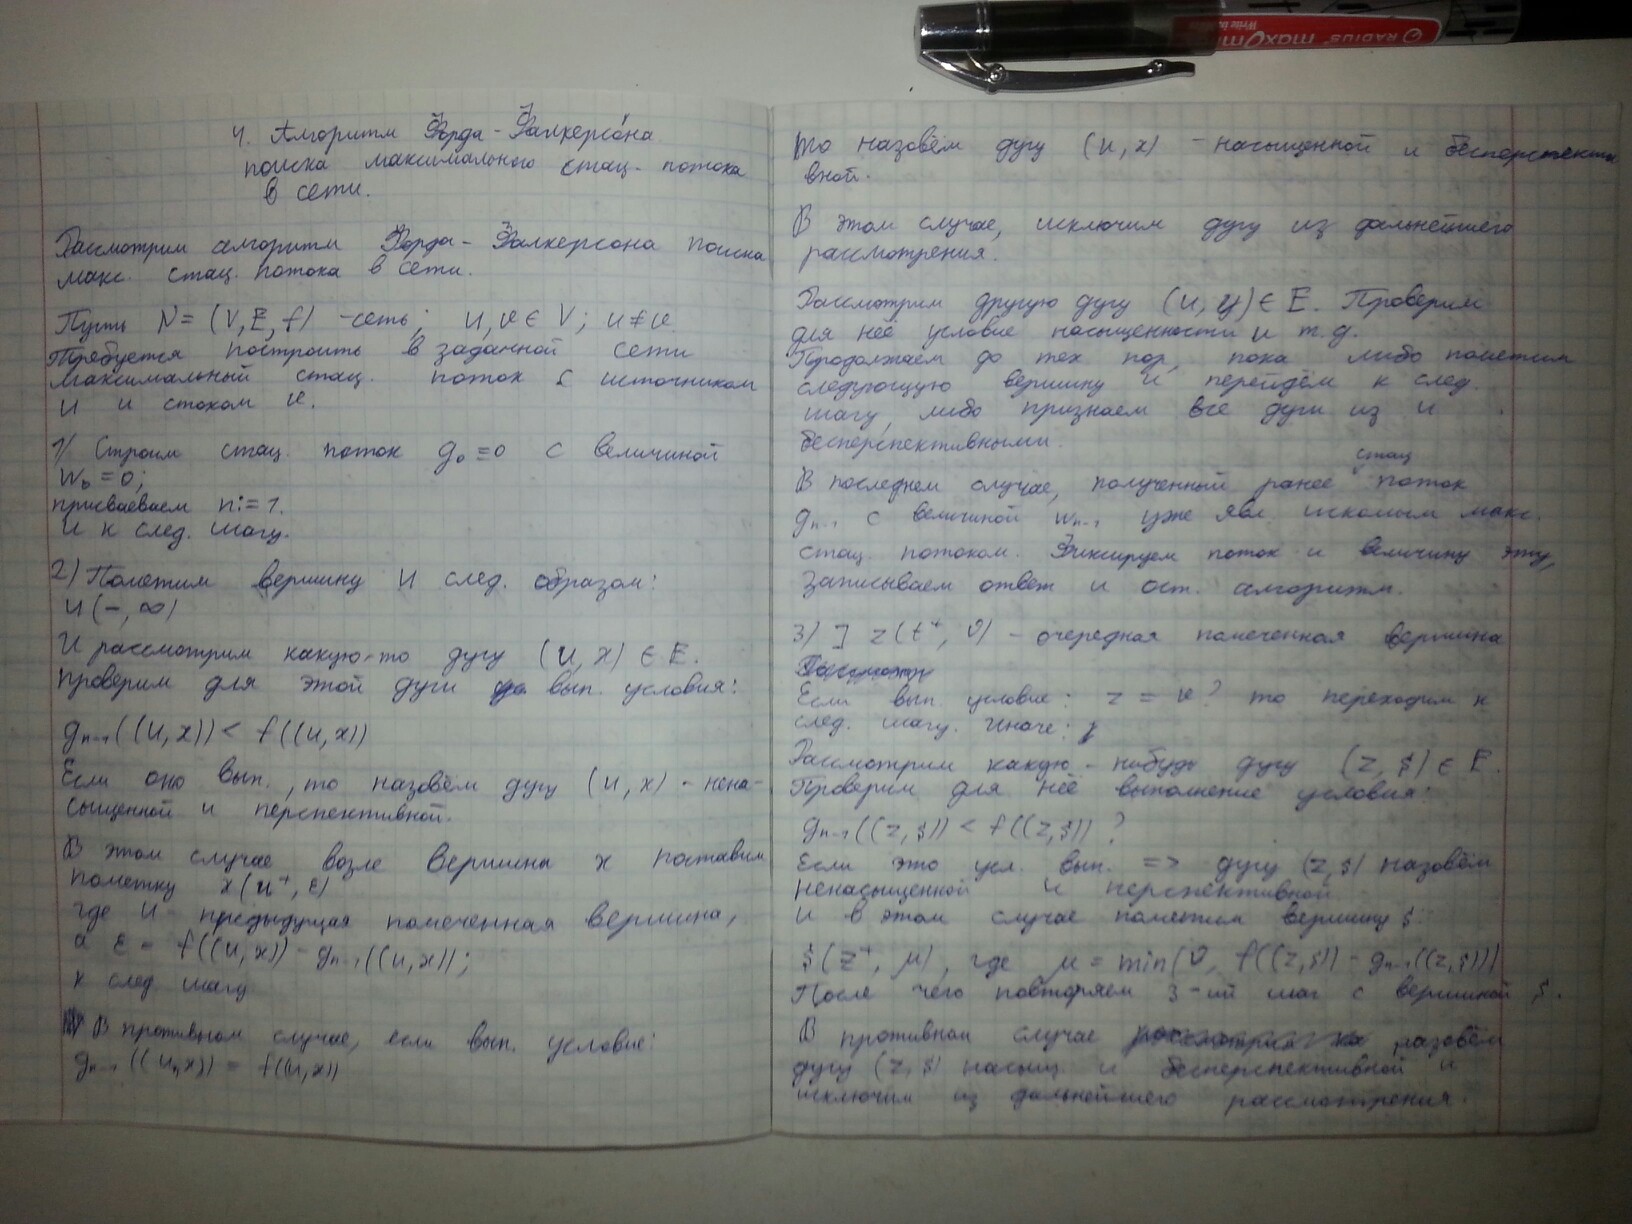 4. Алгоритм Форда-Фалкерсона
поиска максимального стац. потока
в сети.
Рассмотрим алгоритм Форда-Фалкерсона поиска
макс. стац. потока в сети.
Пусть N = (V, E, f) - сеть; u, v ∈ V; u ≠ v
Требуется построить в заданной сети
максимальный стац. поток с источником
u и стоком v.
1) Строим стац. поток g₀ ≡ 0 с величиной
w₀ = 0;
присваеваем n := 1.
и к след. шагу.
2) Пометим вершину u след. образом:
u(-, ∞)
И рассмотрим какую-то дугу (u, x) ∈ E.
проверим для этой дуги вып. условия:
gₙ₋₁((u, x)) < f((u, x))
Если оно вып., то назовём дугу (u, x) - нена-
сыщенной и перспективной.
В этом случае возле вершина x поставим
пометку x(u⁺, ε)
где u - предыдущая помеченная вершина,
а ε = f((u, x)) - gₙ₋₁((u, x));
к след шагу
В противном случае, если вып. условие:
gₙ₋₁((u, x)) = f((u, x))
то назовём дугу (u, x) - насыщенной и бесперспекти
вной.
В этом случае, исключим дугу из дальнейшего
рассмотрения.
Рассмотрим другую дугу (u, y) ∈ E. Проверим
для неё условие насыщенности и т.д.
Продолжаем до тех пор, пока либо пометим
следующую вершину и перейдём к след.
шагу, либо признаем все дуги из u
бесперспективными.
стац
В последнем случае, полученный ранее поток
gₙ₋₁ с величиной wₙ₋₁ уже явл. искомым макс.
стац. потоком. Фиксируем поток и величину эту,
записываем ответ и ост. алгоритм.
3) ] z(t⁺, ϑ) - очередная помеченная вершина
Если вып. условие: z = v? то переходим к
след. шагу. Иначе:
Рассмотрим какую-нибудь дугу (z, s) ∈ E.
Проверим для неё выполнение условия:
gₙ₋₁((z, s)) < f((z, s)) ?
Если это усл. вып. => дугу (z, s) назовём
ненасыщенной и перспективной
и в этом случае пометим вершину s:
s(z⁺, μ), где μ = min(ϑ, f((z, s)) - gₙ₋₁((z, s)))
После чего повторяем 3-ий шаг с вершиной s.
В противном случае назовём
дугу (z, s) насыщ и бесперспективной и
исключим из дальнейшего рассмотрения.
RADIUS maxOm
Write